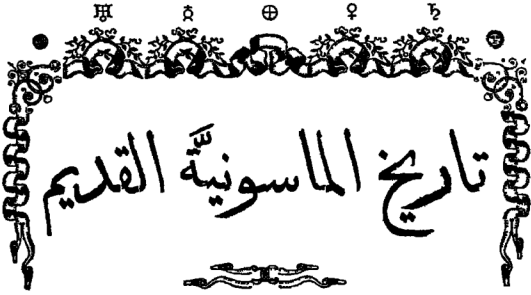 تاريخ الماسونيَّة القديم